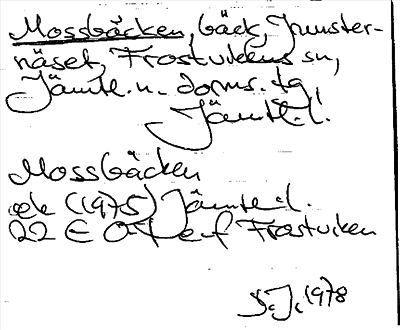 Mossbäcken, bäck, Junster-
näset, Frostvikens sn,
Jämtl. n. doms. tg,
Jämtl. l.
Mossbäcken
ek (1975) Jämtl l.
22 E 0 f Frostviken
S.J. 1978